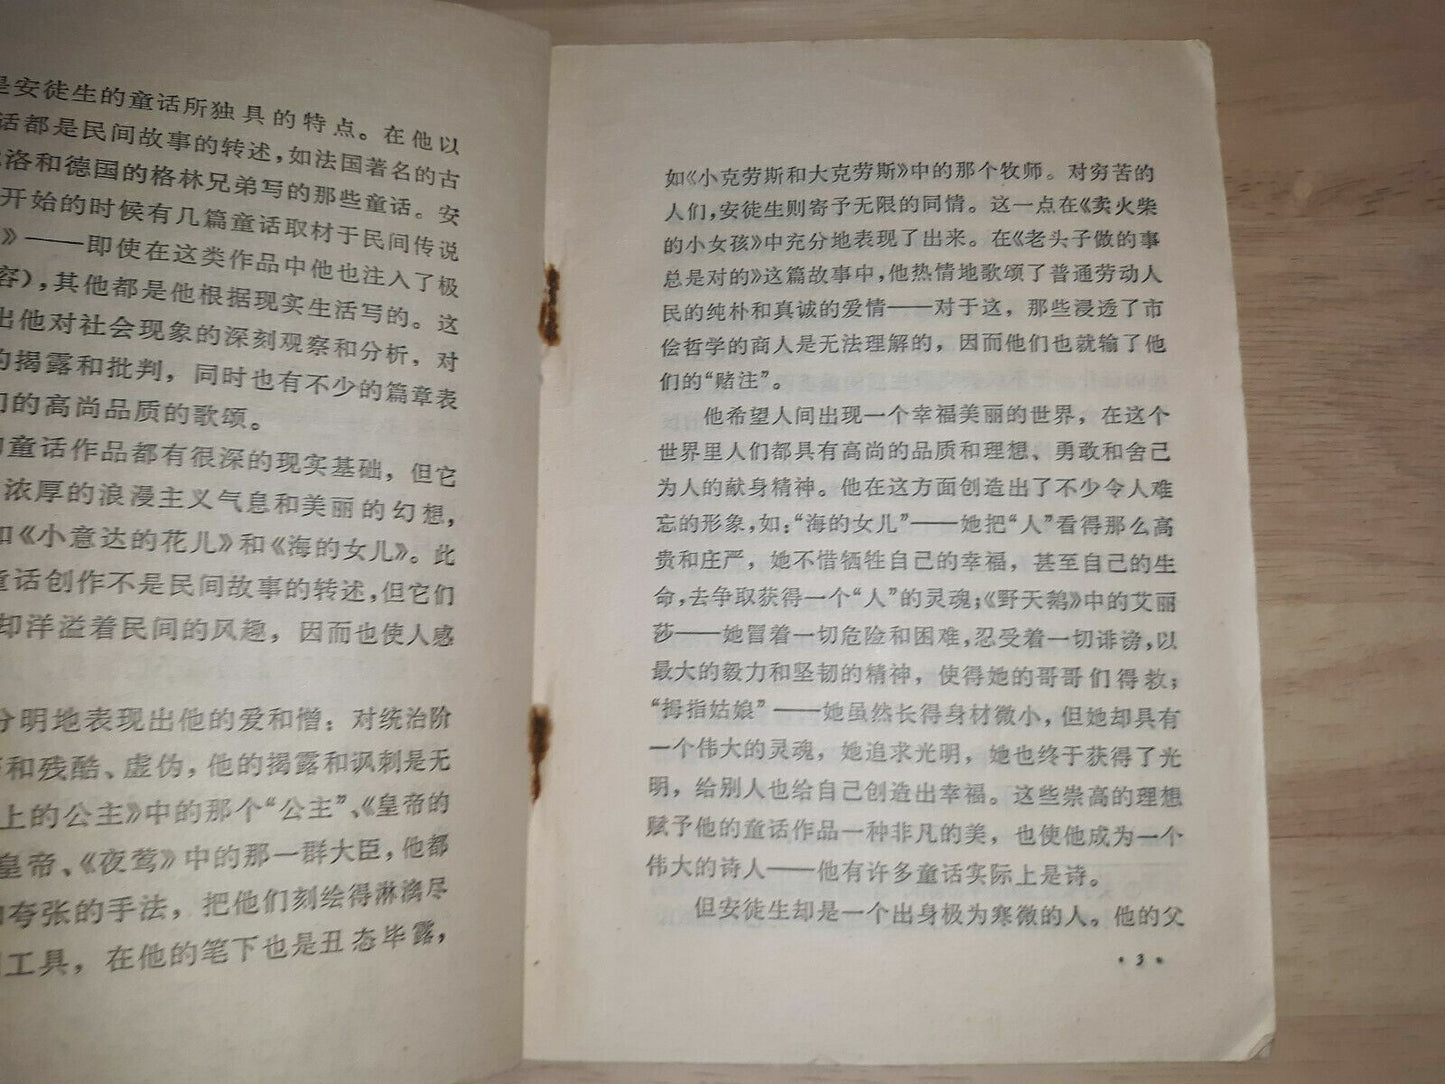 是安徒生的童话所独具的特点。在他以
话都是民间故事的转述，如法国著名的古
洛和德国的格林兄弟写的那些童话。安
开始的时候有几篇童话取材于民间传说
》——即使在这类作品中他也注入了极
容），其他都是他根据现实生活写的。这
出他对社会现象的深刻观察和分析，对
的揭露和批判，同时也有不少的篇章表
们的高尚品质的歌颂。
童话作品都有很深的现实基础，但它
浓厚的浪漫主义气息和美丽的幻想，
如《小意达的花儿》和《海的女儿》。此
童话创作不是民间故事的转述，但它们
却洋溢着民间的风趣，因而也使人感
分明地表现出他的爱和憎：对统治阶
和残酷、虚伪，他的揭露和讽刺是无
上的公主》中的那个“公主”、《皇帝的
皇帝、《夜莺》中的那一群大臣，他都
夸张的手法，把他们刻绘得淋漓尽
工具，在他的笔下也是丑态毕露，
如《小克劳斯和大克劳斯》中的那个牧师。对穷苦的
人们，安徒生则寄予无限的同情。这一点在《卖火柴
的小女孩》中充分地表现了出来。在《老头子做的事
总是对的》这篇故事中，他热情地歌颂了普通劳动人
民的纯朴和真诚的爱情——对于这，那些浸透了市
侩哲学的商人是无法理解的，因而他们也就输了他
们的“赌注”。
他希望人间出现一个幸福美丽的世界，在这个
世界里人们都具有高尚的品质和理想、勇敢和舍己
为人的献身精神。他在这方面创造出了不少令人难
忘的形象，如：“海的女儿”——她把“人”看得那么高
贵和庄严，她不惜牺牲自己的幸福，甚至自己的生
命，去争取获得一个“人”的灵魂；《野天鹅》中的艾丽
莎——她冒着一切危险和困难，忍受着一切诽谤，以
最大的毅力和坚韧的精神，使得她的哥哥们得救；
“拇指姑娘”——她虽然长得身材微小，但她却具有
一个伟大的灵魂，她追求光明，她也终于获得了光
明，给别人也给自己创造出幸福。这些崇高的理想
赋予他的童话作品一种非凡的美，也使他成为一个
伟大的诗人——他有许多童话实际上是诗。
但安徒生却是一个出身极为寒微的人。他的父
• 3 •